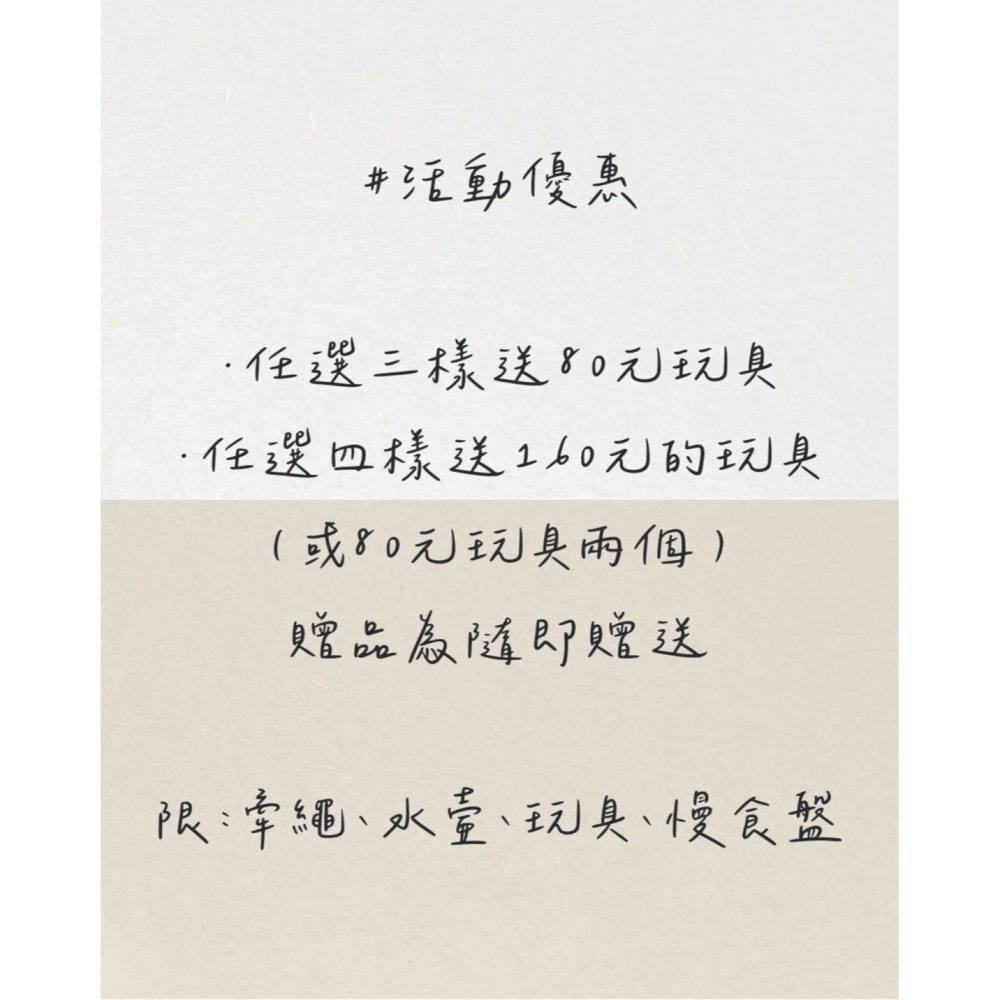 #活動優惠
·任選三樣送80元玩具
·任選四樣送160元的玩具
(或80元玩具兩個)
贈品為隨即贈送
限:牽繩、水壺、玩具、慢食盤